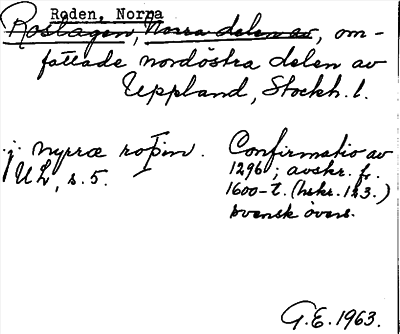 Roden, Norra
Roslagen, Norra delen av, om-
fattade nordöstra delen av
Uppland, Stockh. l.
j. nyrræ roþin. Confirmatio av
UL, s. 5. 1296; avskr. fr.
1600-t. (hskr. 123.)
svensk övers.
G.E. 1963.